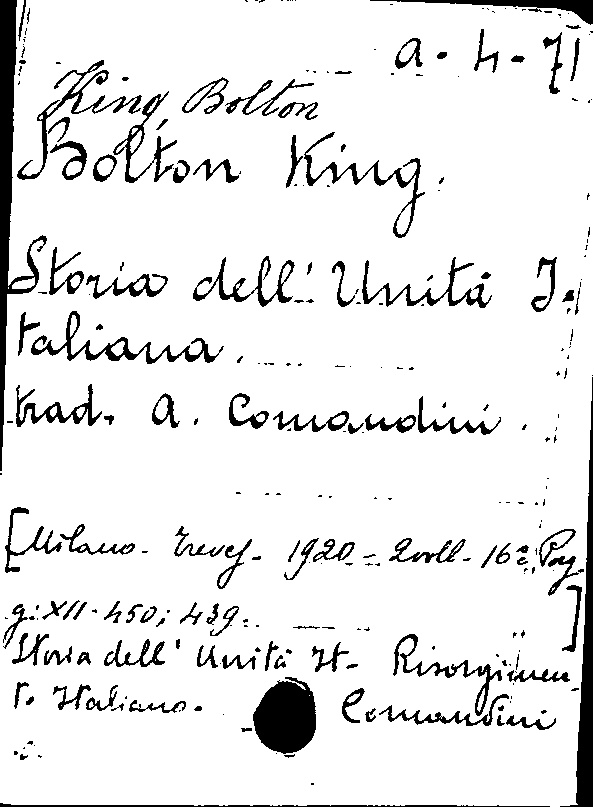 a-4-71
King, Bolton
Bolton King.
Storia dell' Unità I-
taliana.
trad. A. Comandini.
[Milano - Treves - 1920 - 2 voll - 16º, Pag-
g: XII-450; 439.]
Storia dell' Unità It- Risorgimen-
t. Italiano. Comandini